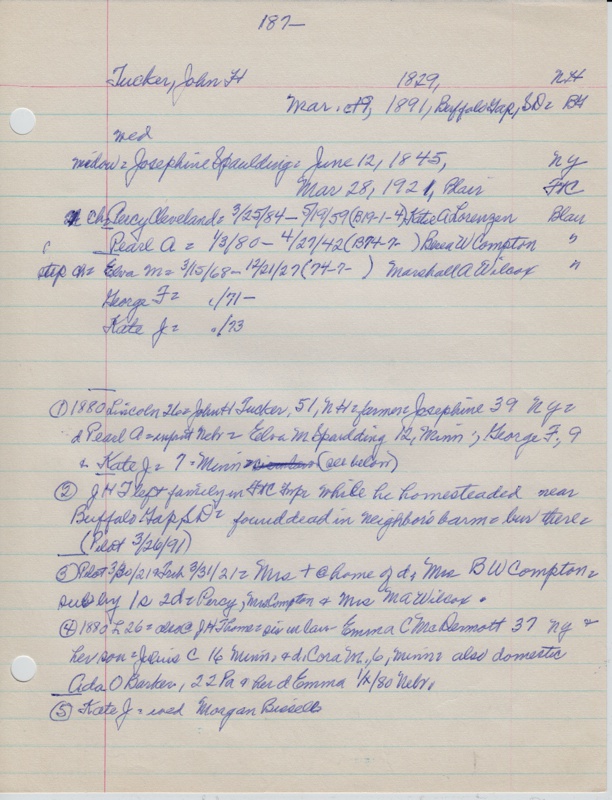 187-
Tucker, John H 1829, NH
Mar. 19, 1891, Buffalo Gap, SD = BH
wed
widow = Josephine Spaulding = June 12, 1845, NY
Mar 28, 1921, Blair FHC
ch = Percy Cleveland = 3/25/84 - 5/19/59 (B19-1-4) Kate A Lorenzen Blair
Pearl A = 1/3/80 - 4/27/42 (B74-7- ) Bves W Compton "
step ch = Elva M = 3/15/68 - 12/21/27 (74-7- ) Marshall A Wilcox "
George F = /71 -
Kate J = /73
① 1880 Lincoln 26 = John H Tucker, 51, NH = farmer = Josephine 39 NY =
d Pearl A = infant Nebr = Elva M Spaulding 12, Minn; George F, 9
& Kate J = 7 = Minn (see below)
② J H T left family in FHC Twp while he homesteaded near
Buffalo Gap, SD = found dead in neighbor's barn = bur there =
(Pilot 3/26/91)
③ Pilot 3/30/21 & Trib 3/31/21 = Mrs T @ home of d, Mrs B W Compton =
surv by 1s 2d = Percy, Mrs Compton & Mrs MA Wilcox.
④ 1880 L 26 = also @ JHT home = sis in law Emma C McDermott 37 NY &
her son = Julius C 16 Minn, & d, Cora M, 6, Minn = also domestic
Ada O Barker, 22 Pa & her d Emma 1/12/80 Nebr.
⑤ Kate J = wed Morgan Bissell